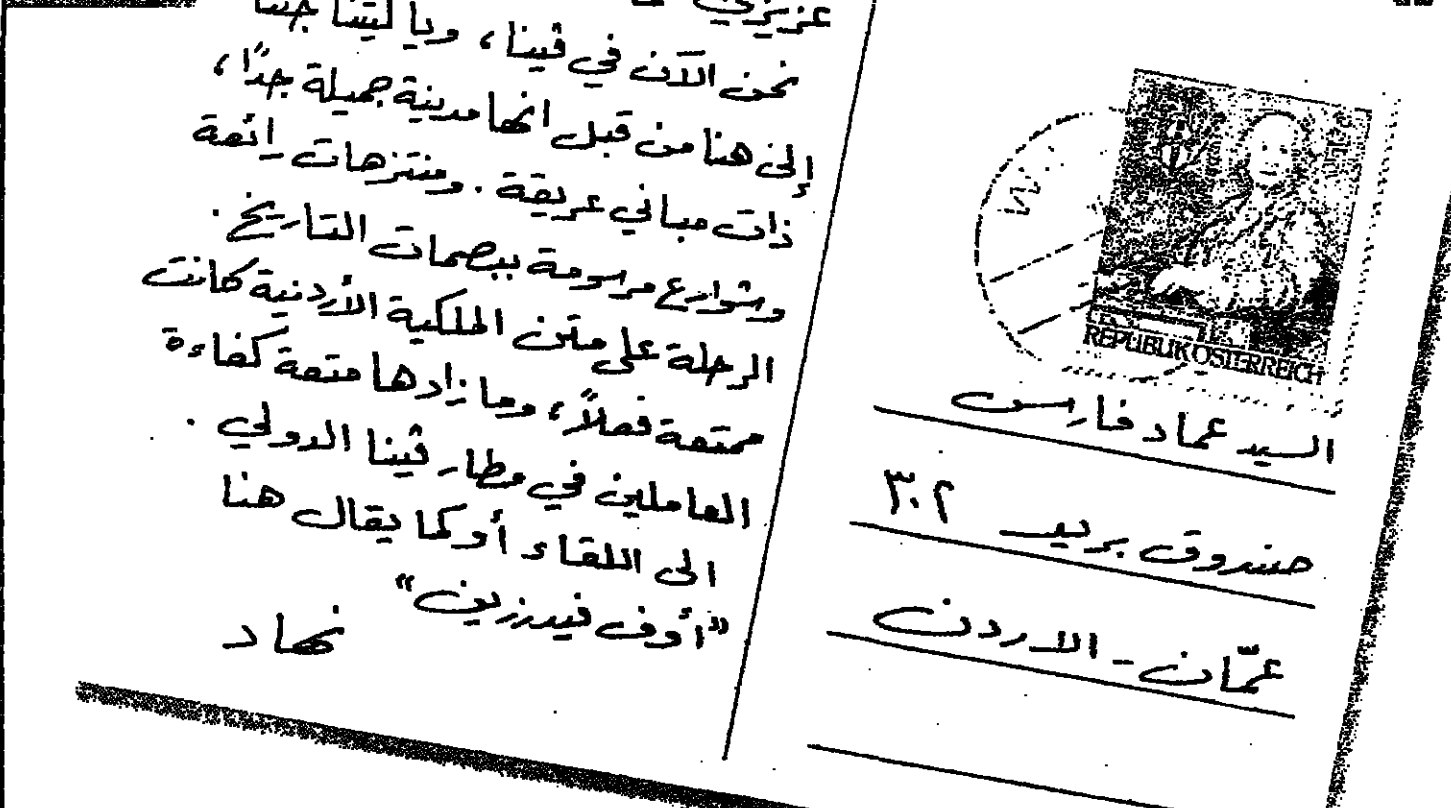 عزيزي
نحن الآن في ڤينا، ويا ليتنا جئنا
إلى هنا من قبل انها مدينة جميلة جدًا،
ذات مباني عريقة. ومنتزهات رائعة
وشوارع مرسومة ببصمات التاريخ.
الرحلة على متن الملكية الأردنية كانت
ممتعة فعلاً، وما زادها متعة كفاءة
العاملين في مطار ڤينا الدولي.
الى اللقاء أو كما يقال هنا
"أوف فيدرزين"
نهاد
W
REPUBLIK ÖSTERREICH
السيد عماد فارس
صندوق بريد ٣٠٢
عمّان - الاردن